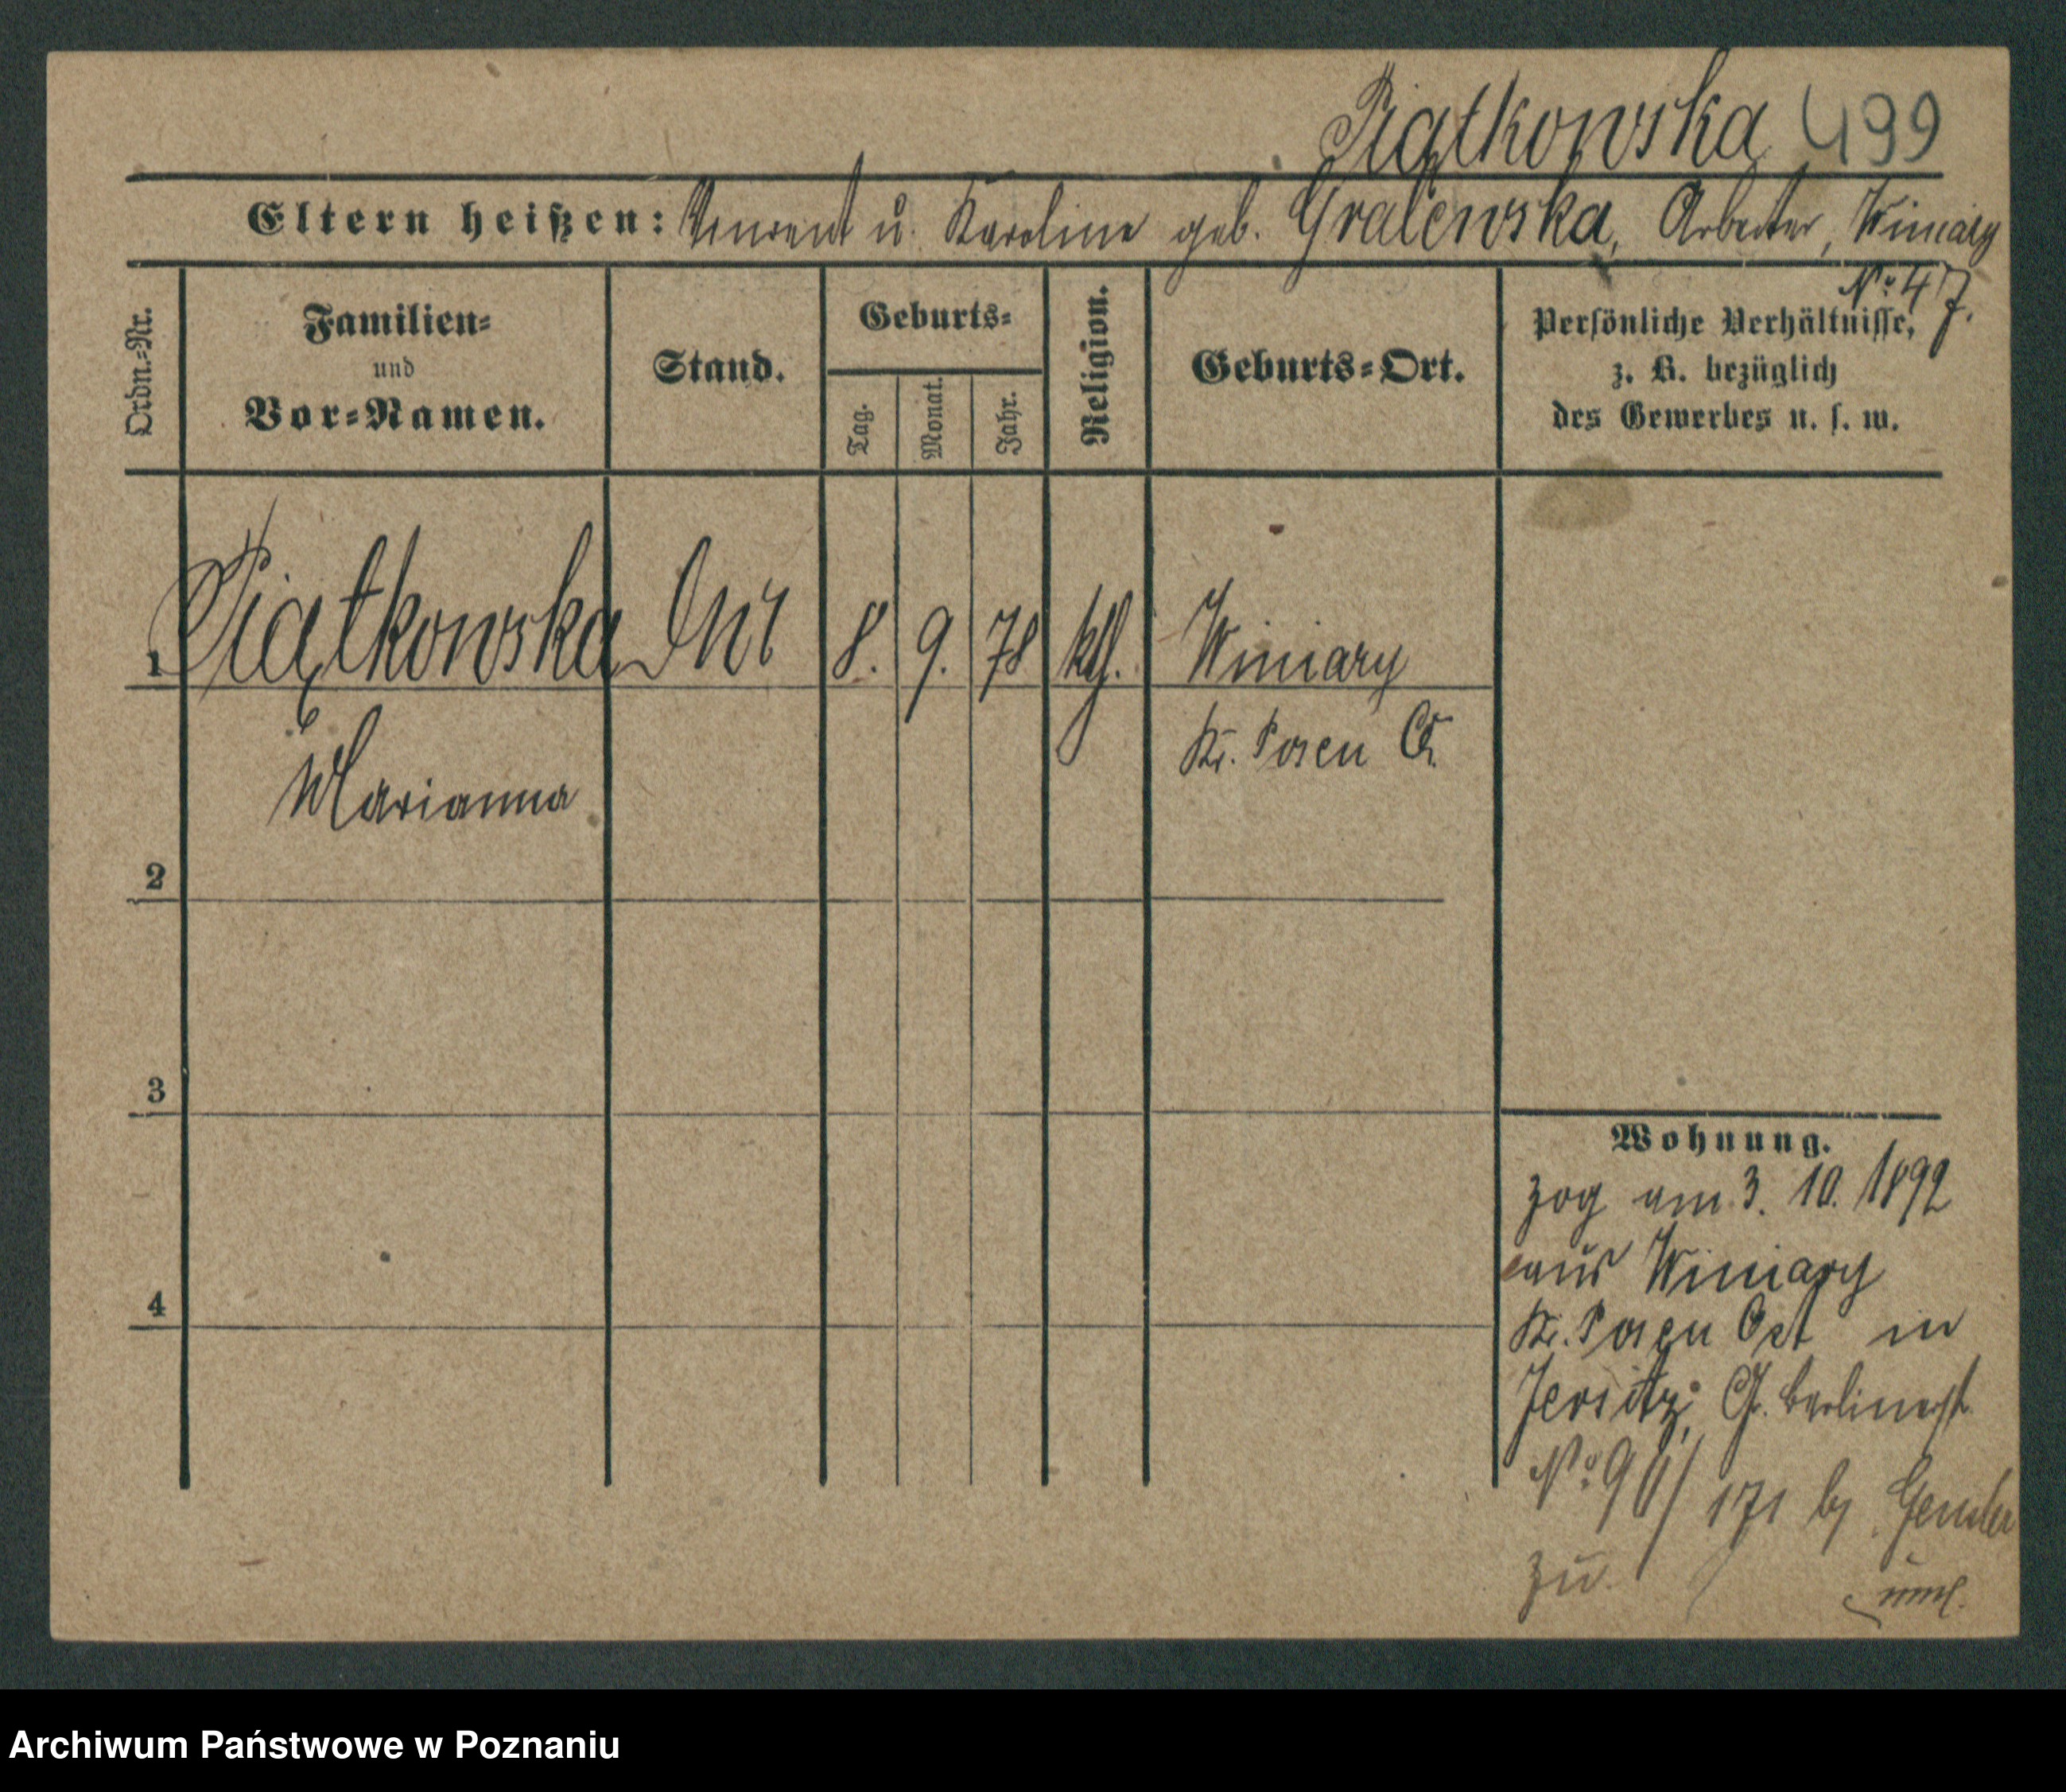 Piątkowska 499
Eltern heißen: Vincent u. Karoline geb. Gralewska, Arbeiter, Winiary
No 47.
Ordn.=Nr.
Familien= und Vor=Namen.
Stand.
Geburts= Tag. Monat. Jahr.
Religion.
Geburts=Ort.
Persönliche Verhältnisse,
z. B. bezüglich
des Gewerbes u. s. w.
1 Piątkowska 8. 9. 78 kth. Winiary
Kr. Posen O.
Marianna
2
3
4
Wohnung.
zog am 3. 10. 1892
aus Winiary
Kr. Posen Ost in
Jersitz, Gr. Berlinerst.
No 171 bj.
zu.
Archiwum Państwowe w Poznaniu